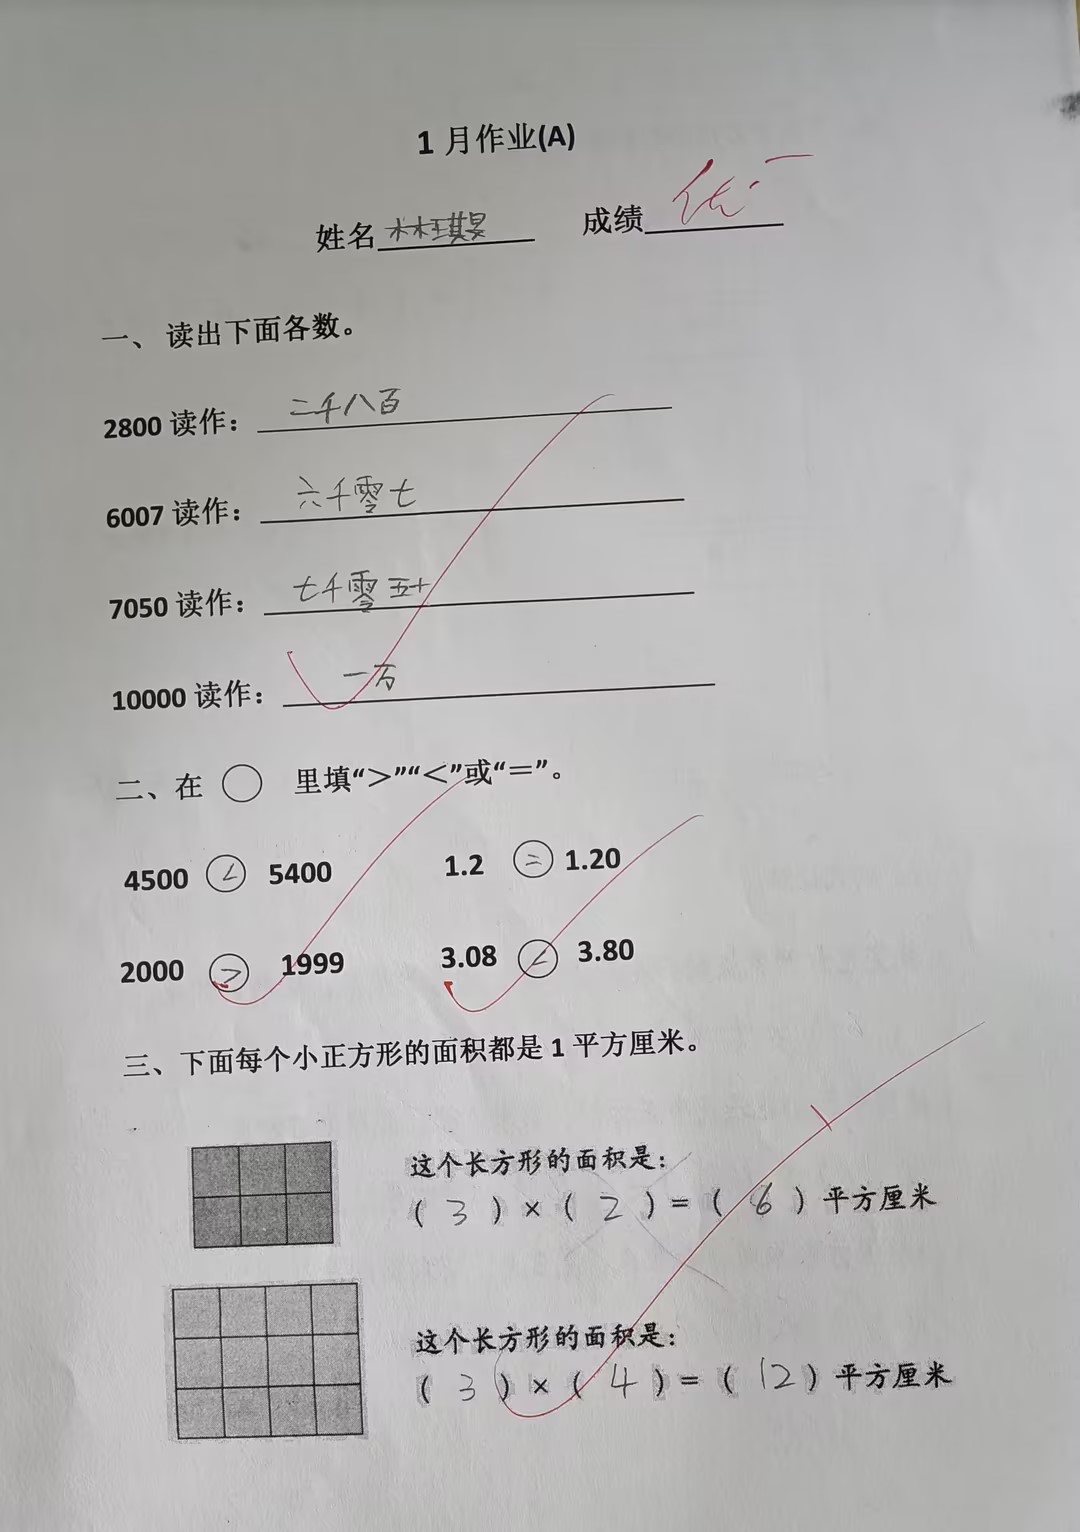 1 月作业(A)
姓名 林琪昊 成绩 优-
一、 读出下面各数。
2800 读作： 二千八百
6007 读作： 六千零七
7050 读作： 七千零五十
10000 读作： 一万
二、在 ○ 里填“＞”“＜”或“＝”。
4500 < 5400 1.2 = 1.20
2000 > 1999 3.08 < 3.80
三、下面每个小正方形的面积都是 1 平方厘米。
这个长方形的面积是：
( 3 ) × ( 2 ) = ( 6 ) 平方厘米
这个长方形的面积是：
( 3 ) × ( 4 ) = ( 12 ) 平方厘米